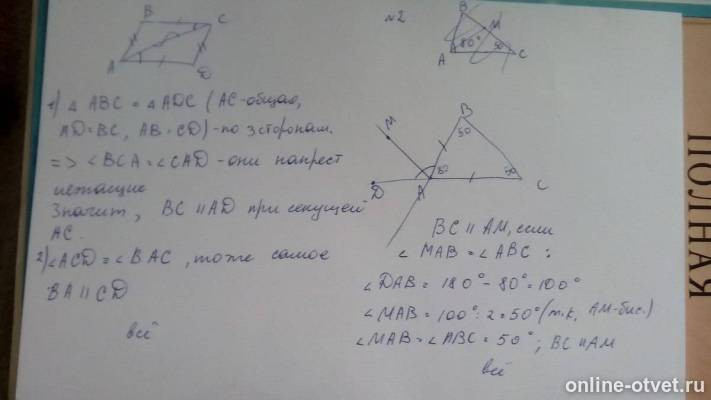 B
C
A
D
1) △ ABC = △ ADC (AC-общая,
AD=BC, AB=CD) - по 3 сторонам.
=> ∠BCA = ∠CAD - они напрест
лежащие
Значит, BC || AD при секущей
AC.
2) ∠ACD = ∠BAC, тоже самое
BA || CD
всё
№2
B
M
A
80°
50
C
M
B
50
80
50
D
A
C
BC || AM, если
∠ MAB = ∠ABC :
∠DAB = 180° - 80° = 100°
∠MAB = 100° : 2 = 50° (т.к. AM-бис.)
∠MAB = ∠ABC = 50° ; BC || AM
всё
ПОЛНАЯ
online-otvet.ru